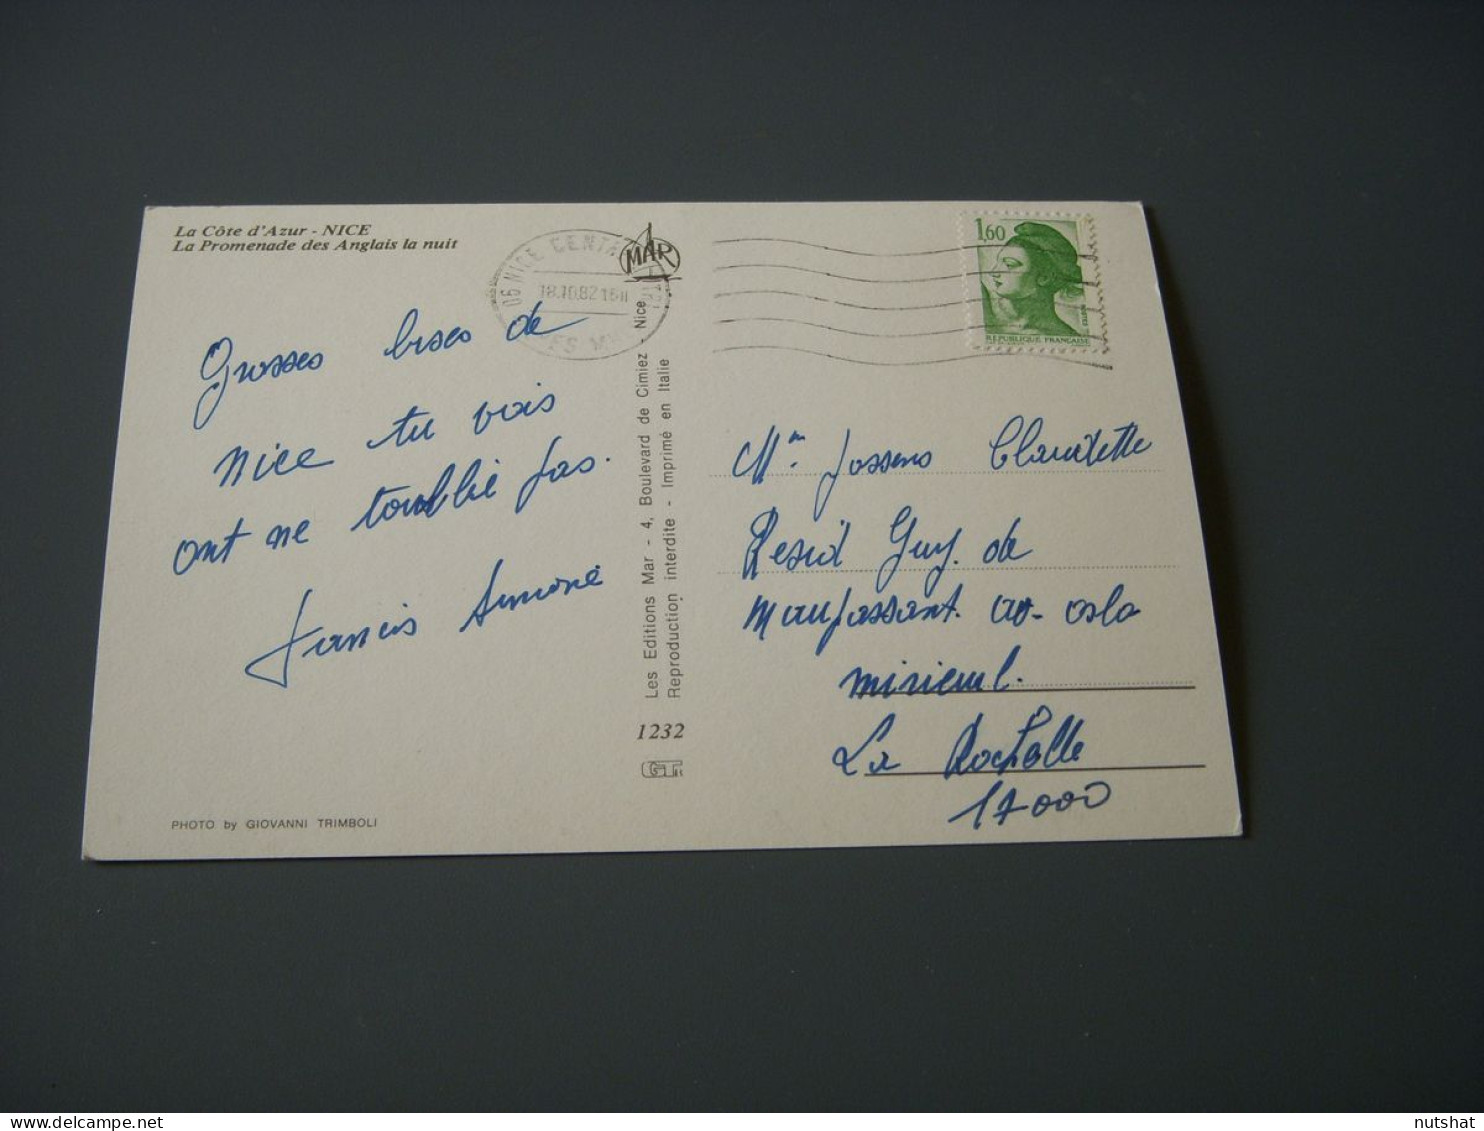 La Côte d'Azur - NICE
La Promenade des Anglais la nuit
06 NICE CENTR
18.10.82 16H
MAR
1,60
REPUBLIQUE FRANÇAISE
Grosses bises de
Nice tu vois
ont ne t'oublie pas.
Francis Simone
Les Editions Mar - 4, Boulevard de Cimiez - Nice
Reproduction interdite - Imprimé en Italie
1232
PHOTO by GIOVANNI TRIMBOLI
Mme Jossens Claudette
Resid Guy. de
Maupassant. av. oslo
mirieul.
La Rochelle
17000
nutshat